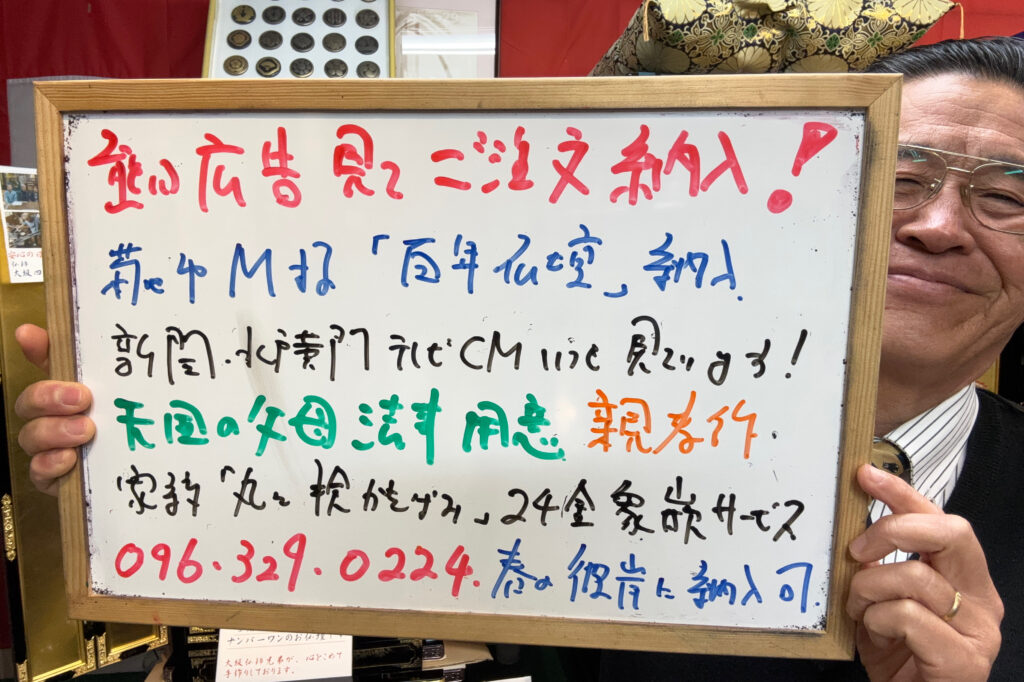 熊日広告見て ご注文納入!
菊池や M様「百年仏壇」納入
新聞・水戸黄門 テレビCM いつも見ています!
天国の父母 法事用意 親孝行.
家族「丸に」24金象嵌サービス
096.329.0224. 春の彼岸に納入可.
ナンバーワンのお仏壇
大阪仏師兄弟が、心をこめて
手作りしております。